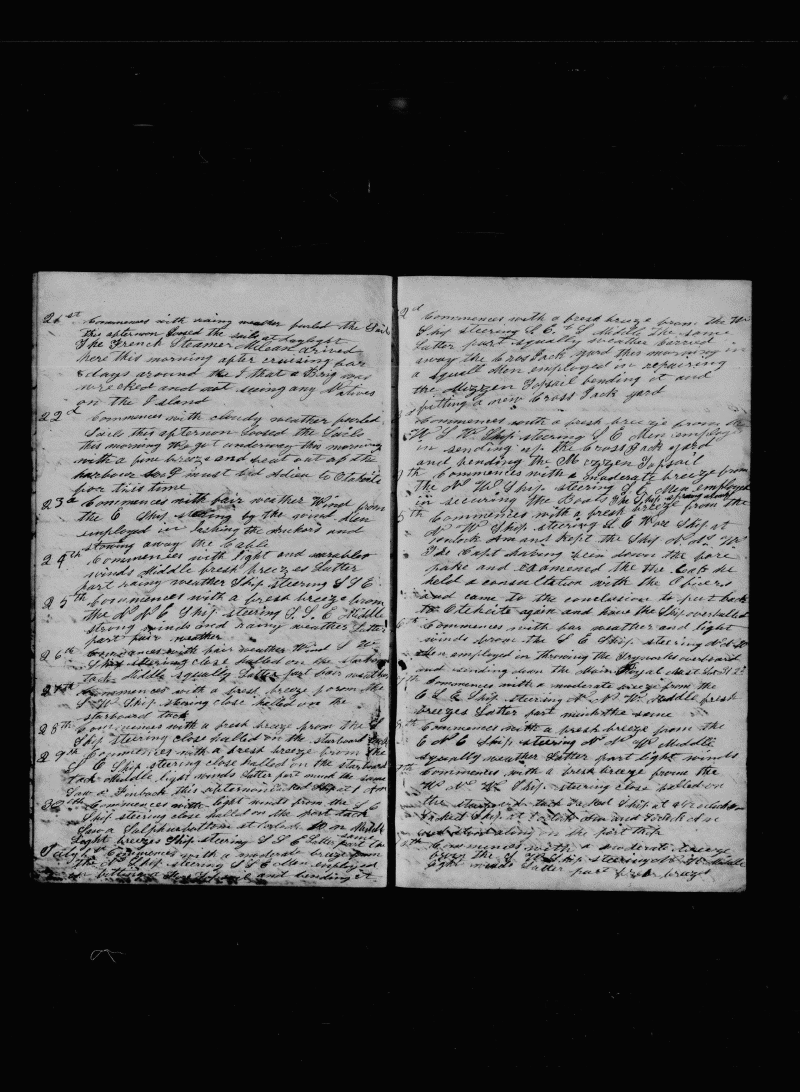 21st Commences with rainy weather furled the Sails
this afternoon loosed the sails at daylight
The French Steamer Mlean arived
here this morning after cruising for
8 days around the I that a Brig was
wrecked and not seeing any Natives
on the Island
22d Commences with cloudy weather furled
Sails this afternoon loosed the Sails
this morning the got underway this morning
with a fine breeze and went out of the
harbour So I must bid adieu to Otahaite
for this time
23d Commences with fair weather Wind from
the E Ship steering by the wind Men
employed in lashing the Anchors and
stowing away the Cable
24th Commences with light and
winds Middle fresh breezes Latter
part rainy weather Ship steering S S E
25th Commences with a fresh breeze from
the N N E Ship steering S. S. E Middle
strong winds and rainy weather Latter
part fair weather
26th Commences with fair weather Wind S
Ship steering close halled on the starboard
tack Middle squally Latter part fair weather
27th Commences with a fresh breeze from the
S W Ship steering close halled on the
starboard tack
28th Commences with a fresh breeze from the S
Ship steering close halled on the starboard tack
29th Commences with a fresh breeze from the
S E Ship steering close halled on the starboard
tack Middle light winds Latter part much the same
Saw a Finback this afternoon Tacked Ship at 1 Am
30th Commences with light winds from the S E
Ship steering close halled on the port tack
Saw a Sulphurbottom at Middle
Light breezes Ship steering S S E Latter part the same
July 1st Commences with a moderate breeze from
the Ship steering S E Men employed
in Topsail and bending it
2d Commences with a fresh breeze from the
Ship steering S E. by S Middle the same
Latter part squally weather
away the Cros Jack yard this morning in
a squall Men employed in repairing
the Mizzen Topsail bending it and
fitting a new Cross Jack yard
Commences with a fresh breeze from the
W S W Ship steering S E Men employ
in sending up the Cross Jack yard
and bending the Mizzen Topsail
th Commences with a moderate breeze from
the N W Ship steering S E Men employed
in securing the Boats The Ship sprung aleak
5th Commences with a fresh breeze from the
N W Ship steering S E Wore Ship at
oclock Am and kept the Ship N N W
The Capt having been down the fore
pake and examened the the leak he
held a consultation with the Oficers
and came to the conclusion to put back
to Oteheite again and have the Ship overhalled
6th Commences with fair weather and light
winds from the S E Ship steering N N W
Men employed in throwing the Trywork overboard
and sending down the Main Royal Mast
7th Commences with a moderate breeze from the
E S E Ship steering N N W Middle fresh
breezes Latter part much the same
8th Commences with a fresh breeze from the
E N E Ship steering N N W Middle
squally weather Latter part light winds
9th Commences with a fresh breeze from the
W N W Ship steering close halled on
the starboard tack Tacked Ship at
Tacked Ship at oclock Am and Tacked
along on the port
10th Commences with a moderate breeze
from the S W Ship steering N W Middle
light winds Latter part fresh breezes